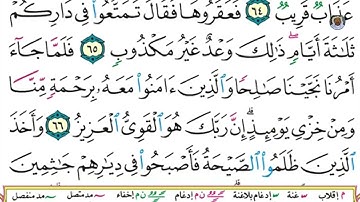 عَذَابٌ قَرِيبٌ ٦٤ فَعَقَرُوهَا فَقَالَ تَمَتَّعُوا۟ فِى دَارِكُمْ
ثَلَٰثَةَ أَيَّامٍ ۖ ذَٰلِكَ وَعْدٌ غَيْرُ مَكْذُوبٍ ٦٥ فَلَمَّا جَآءَ
أَمْرُنَا نَجَّيْنَا صَٰلِحًا وَٱلَّذِينَ ءَامَنُوا۟ مَعَهُۥ بِرَحْمَةٍ مِّنَّا
وَمِنْ خِزْىِ يَوْمِئِذٍ ۗ إِنَّ رَبَّكَ هُوَ ٱلْقَوِىُّ ٱلْعَزِيزُ ٦٦ وَأَخَذَ
ٱلَّذِينَ ظَلَمُوا۟ ٱلصَّيْحَةُ فَأَصْبَحُوا۟ فِى دِيَٰرِهِمْ جَٰثِمِينَ
م إقلاب س غنة إدغام بلاغنة م إدغام م إخفاء مد متصل مد منفصل